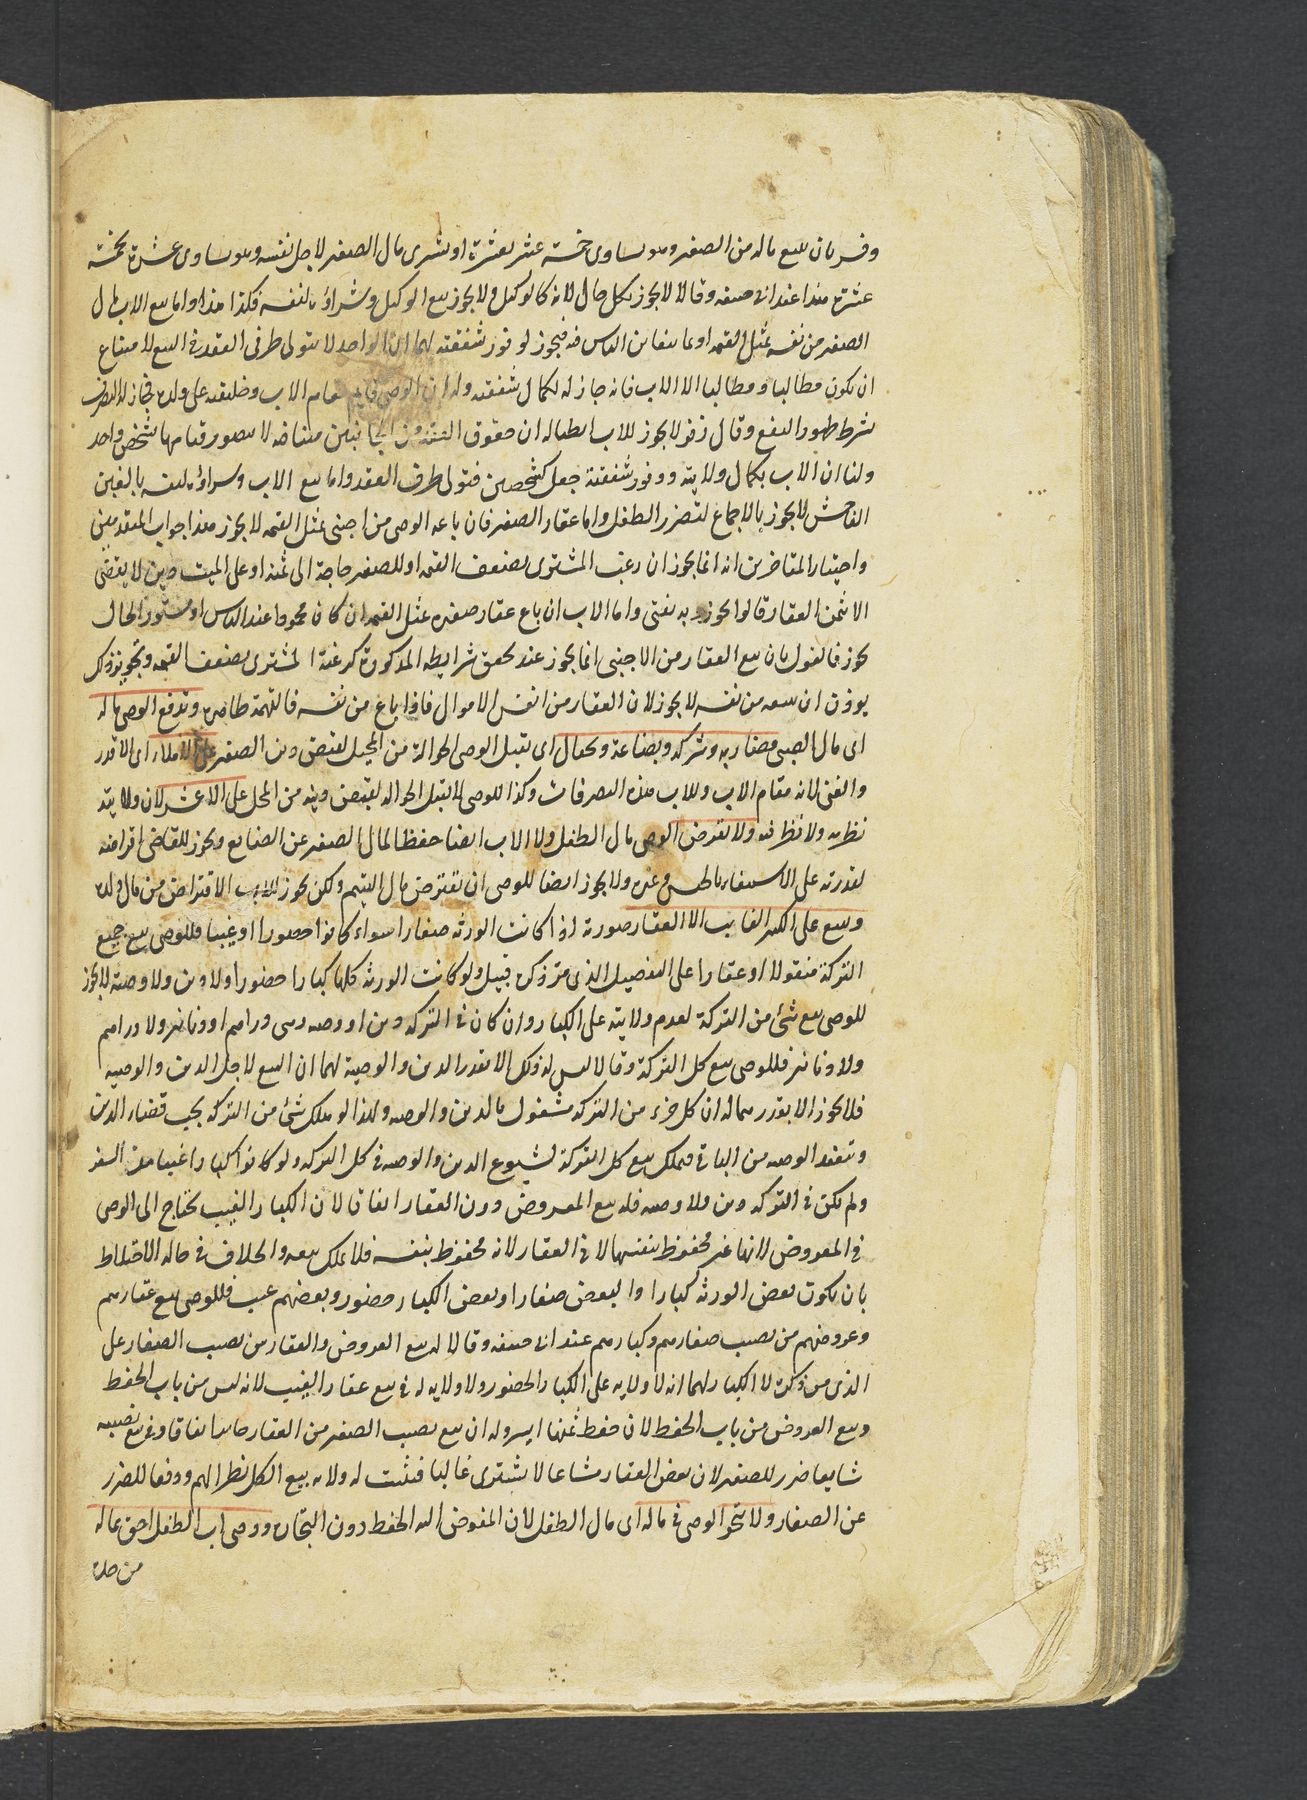 وفسر بان يبيع ماله من الصغير وهو يساوى خمسة عشر بعشرة او يشترى مال الصغير لاجل نفسه وهو يساوى عشرة بخمسة
عشر هذا عند ابى حنيفه وقالا لا يجوز بكل حال لانه كالوكيل ولا يجوز بيع الوكيل وشراؤه لنفسه فكذا هذا واما بيع الاب مال
الصغير من نفسه بمثل القيمه او بما يتغابن الناس فيه فيجوز لوفور شفقته لهما ان الواحد لا يتولى طرفى العقد فى البيع لامتناع
ان يكون مطالبا ومطالبا الا الاب فانه جاز له لكمال شفقته وله ان الوصى قايم مقام الاب وخليفته على ولده فجاز له التصرف
بشرط ظهور النفع وقال زفر لا يجوز للاب ايضا له ان حقوق العقد من الجانبين متنافيه لا يتصور قيامها بشخص واحد
ولنا ان الاب بكمال ولايته ووفور شفقته جعل كشخصين فتولى طرفى العقد واما بيع الاب وشراؤه لنفسه بالغبن
الفاحش لا يجوز بالاجماع لتضرر الطفل واما عقار الصغير فان باعه الوصى من اجنبى بمثل القيمه لا يجوز هذا جواب المتقدمين
واختيار المتاخرين انه انما يجوز ان رغب المشترى بضعف القيمه او للصغير حاجة الى ثمنه او على الميت دين لا يقضى
الا بثمن العقار قالوا يجوز وبه نفتى واما الاب ان باع عقار صغيره بمثل القيمه ان كان محمودا عند الناس او مستور الحال
يجوز فالقول بان بيع العقار من الاجنبى انما يجوز عند تحقق شرايطه المذكورة كرغبة المشترى بضعف القيمه وتجويز ذلك
يوذن ان بيعه من نفسه لا يجوز لان العقار من انفس الاموال فاذا باع من نفسه فالتهمة ظاهره وتدفع الوصى ماله
اى مال الصبى مضاربه وشركه وبضاعة ويحتال اى يقبل الوصى الحوالة من المحيل لقبض دين الصغير على الاملاء اى الاقدر
والغنى لانه مقام الاب وللاب هذه التصرفات وكذا للوصى لا يقبل الحواله لقبض دينه من المحيل على الاعسر لان ولايته
نظريه ولا نظر فيه ولا يقرض الوصى مال الطفل ولا الاب ايضا حفظا لمال الصغير عن الضايع ويجوز للقاضى اقراضه
لقدرته على الاستيفاء بالحبس وغيره ولا يجوز ايضا للوصى ان يقترض مال اليتيم ولكن يجوز للاب الاقتراض من مال ولده
وبيع على الكبير الغايب الا العقار صورته اذا كانت الورثه صغارا سواء كانوا حضورا او غيبا فللوصى بيع جميع
التركة منقولا او عقارا على التفصيل الذى مر ذكره قبيل ولو كانت الورثه كلها كبارا حضورا ولا دين ولا وصية لا يجوز
للوصى بيع شئ من التركة لعدم ولايته على الكبار وان كان فى التركه دين او وصيه وهى دراهم او دنانير ولا دراهم
ولا دنانير فللوصى بيع كل التركة وقالا ليس له ذلك الا بقدر الدين والوصية لهما ان البيع لاجل الدين والوصيه
فلا يجوز الا بقدرهما له ان كل جزء من التركه مشغول بالدين والوصيه ولهذا لو هلك شئ من التركه يجب قضاء الدين
وتنفيذ الوصيه من الباقى فيملك بيع كل التركة لشيوع الدين والوصيه فى كل التركه ولو كانوا كبارا غيبا مدة السفر
ولم تكن فى التركه دين ولا وصيه فله بيع العروض دون العقار اتفاقا لان الكبار الغيب يحتاج الى الوصى
فى العروض لانها غير محفوظ بنفسها لا فى العقار لانه محفوظ بنفسه فلا يملك بيعه والخلاف فى حاله الاختلاط
بان يكون بعض الورثه كبارا والبعض صغارا وبعض الكبار حضور وبعضهم غيب فللوصى بيع عقارهم
وعروضهم من نصيب صغارهم وكبارهم عند ابى حنيفه وقالا له بيع العروض والعقار من نصيب الصغار على
الذى مر ذكره لا الكبار لهما انه لا ولايه على الكبار الحضور ولا ولايه له فى بيع عقار الغيب لانه ليس من باب الحفظ
وبيع العروض من باب الحفظ لان حفظ ثمنها ايسر وله ان بيع نصيب الصغير من العقار جايز اتفاقا وفى بيع نصيبه
شايعا ضرر للصغير لان بعض العقار مشاعا لا يشترى غالبا فثبت له ولايه بيع الكل نظرا لهم ودفعا للضرر
عن الصغار ولا يتجر الوصى فى ماله اى مال الطفل لان المفوض اليه الحفظ دون التجاره ووصى اب الطفل احق بماله
من جده